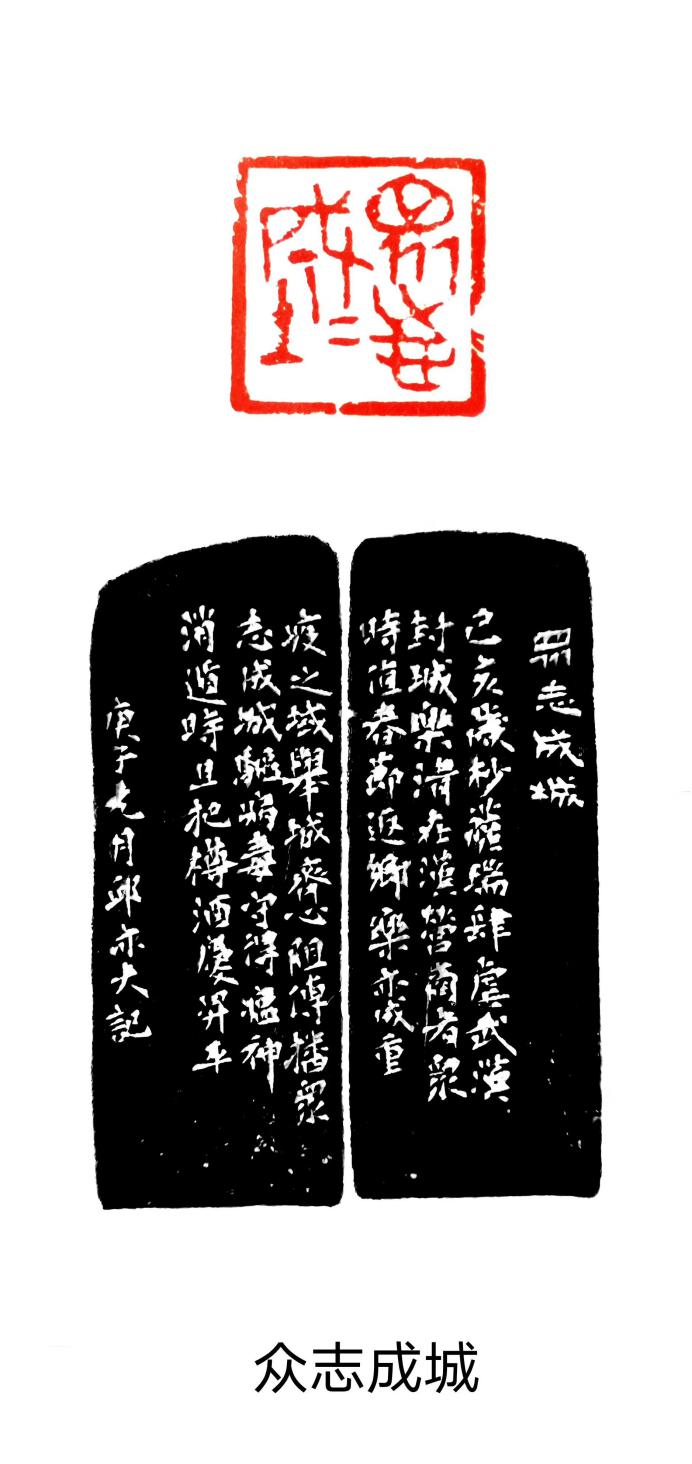 眾志成城
眾志成城
己亥歲杪肆虐武漢
封城樂清在漢營商者眾
時值春節返鄉樂亦成重
疫之域舉城齊心阻傳播眾
志成城驅病毒守得瘟神
消遁時且把樽酒慶昇平
庚子月邱亦大記
众志成城